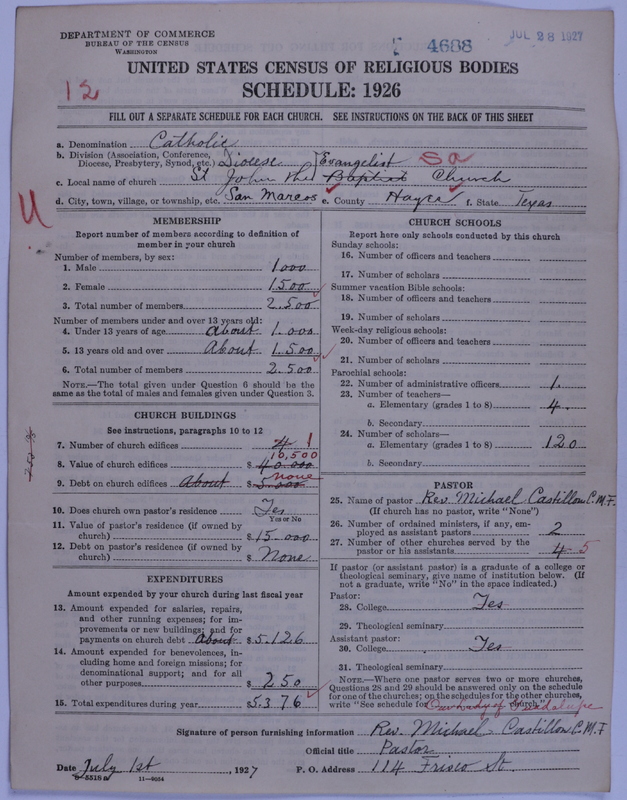 DEPARTMENT OF COMMERCE
BUREAU OF THE CENSUS
WASHINGTON
4688
JUL 28 1927
UNITED STATES CENSUS OF RELIGIOUS BODIES
12
SCHEDULE: 1926
FILL OUT A SEPARATE SCHEDULE FOR EACH CHURCH. SEE INSTRUCTIONS ON THE BACK OF THIS SHEET
a. Denomination Catholic
b. Division (Association, Conference, Diocese, Presbytery, Synod, etc.) Diocese
Evangelist
c. Local name of church St John the Baptist Church
d. City, town, village, or township, etc. San Marcos e. County Hays f. State Texas
MEMBERSHIP
Report number of members according to definition of
member in your church
Number of members, by sex:
1. Male 1000
2. Female 1500
3. Total number of members 2.500
Number of members under and over 13 years old:
4. Under 13 years of age About 1.000
5. 13 years old and over About 1.500
6. Total number of members 2.500
NOTE.—The total given under Question 6 should be the
same as the total of males and females given under Question 3.
CHURCH BUILDINGS
See instructions, paragraphs 10 to 12
7. Number of church edifices 4 1
10,500
8. Value of church edifices $ 40.000
none
9. Debt on church edifices About $ 5.000
10. Does church own pastor's residence Yes
Yes or No
11. Value of pastor's residence (if owned by
church) $ 15.000
12. Debt on pastor's residence (if owned by
church) $ None
EXPENDITURES
Amount expended by your church during last fiscal year
13. Amount expended for salaries, repairs,
and other running expenses; for im-
provements or new buildings; and for
payments on church debt About $ 5.126
14. Amount expended for benevolences, in-
cluding home and foreign missions; for
denominational support; and for all
other purposes $ 250
15. Total expenditures during year $ 5.376
CHURCH SCHOOLS
Report here only schools conducted by this church
Sunday schools:
16. Number of officers and teachers
17. Number of scholars
Summer vacation Bible schools:
18. Number of officers and teachers
19. Number of scholars
Week-day religious schools:
20. Number of officers and teachers
21. Number of scholars
Parochial schools:
22. Number of administrative officers 1.
23. Number of teachers—
a. Elementary (grades 1 to 8) 4.
b. Secondary
24. Number of scholars—
a. Elementary (grades 1 to 8) 120
b. Secondary
PASTOR
25. Name of pastor Rev. Michael Castillon C.M.F.
(If church has no pastor, write "None")
26. Number of ordained ministers, if any, em-
ployed as assistant pastors 2
27. Number of other churches served by the
pastor or his assistants 4 5
If pastor (or assistant pastor) is a graduate of a college or
theological seminary, give name of institution below. (If
not a graduate, write "No" in the space indicated.)
Pastor:
28. College Yes
29. Theological seminary
Assistant pastor:
30. College Yes
31. Theological seminary
NOTE.—Where one pastor serves two or more churches,
Questions 28 and 29 should be answered only on the schedule
for one of the churches; on the schedules for the other churches,
write "See schedule for Our Lady of Guadalupe church."
Signature of person furnishing information Rev. Michael Castillon C.M.F
Official title Pastor
Date July 1st, 1927 P. O. Address 114 Frisco St.
8-5518 a 11—9054